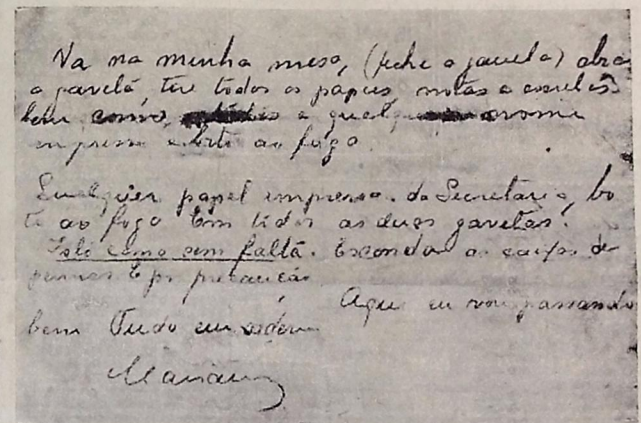 Va na minha mesa, (feche a janela) abra
a gaveta, tire todos os papeis, notas e
bem como, a qualquer nome
impresso e bote ao fogo.
Qualquer papel impresso da Secretaria, bo
te ao fogo tem tidos as duas gavetas.
Isto como sem falta. Esconda as
por precaução.
Aqui eu vou passando
bem Tudo em ordem